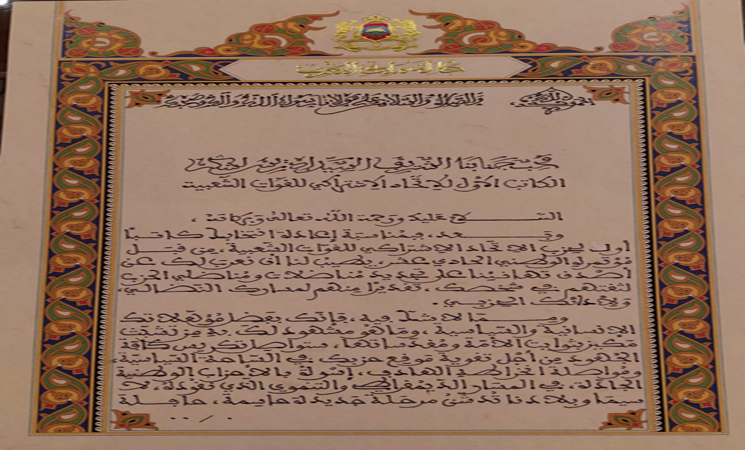 صاحب الجلالة ملك المغرب
الحمد لله وحده والصلاة والسلام على مولانا رسول الله وآله وصحبه
خديم جنابنا الشريف السيد إدريس لشكر
الكاتب الأول للاتحاد الاشتراكي للقوات الشعبية
السلام عليك ورحمة الله تعالى وبركاته،
وبعد، فبمناسبة إعادة انتخابك كاتبا
أول لحزب الاتحاد الاشتراكي للقوات الشعبية، من قبل
مؤتمره الوطني الحادي عشر، يطيب لنا أن نعرب لك عن
أصدق تهانئنا على تجديد مناضلات ومناضلي الحزب
لثقتهم في شخصك، تقديرا منهم لمسارك النضالي،
ولأدائك الحزبي.
ومما لا شك فيه، فإنك بفضل مؤهلاتك
الإنسانية والسياسية، وما هو مشهود لك به من تشبث
مكين بثوابت الأمة ومقدساتها، ستواصل تكريس كافة
الجهود من أجل تقوية موقع حزبك، في الساحة السياسية،
ومواصلة انخراطه الهادف، أسوة بالأحزاب الوطنية
الجادة، في المسار الديمقراطي والتنموي الذي نقوده، لا
سيما وبلادنا تدشن مرحلة جديدة حاسمة، حافلة
../..